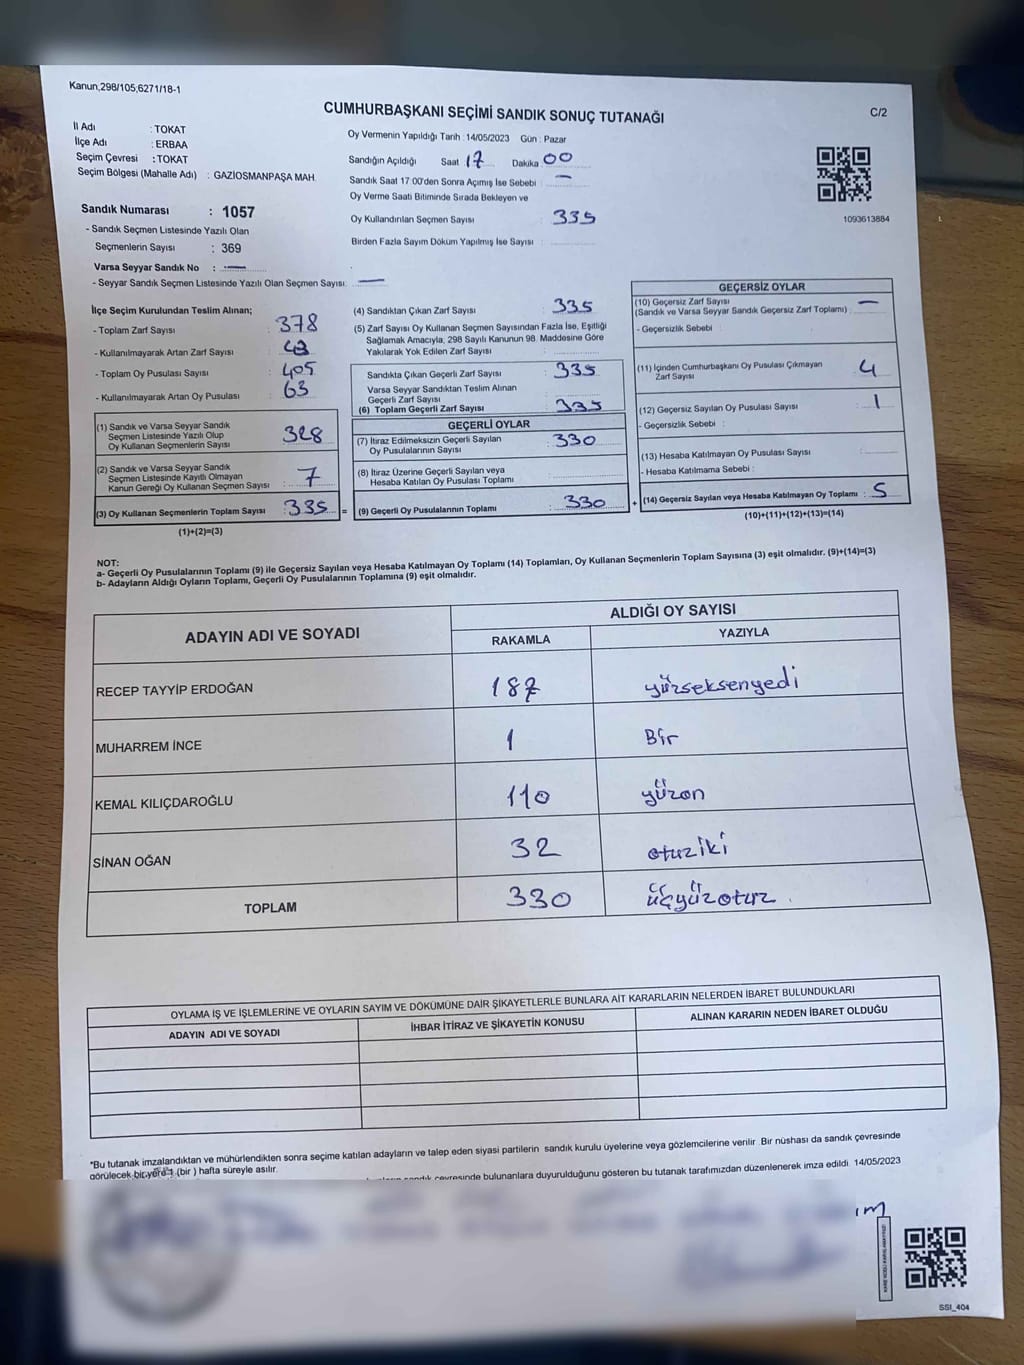 Kanun,298/105,6271/18-1
CUMHURBAŞKANI SEÇİMİ SANDIK SONUÇ TUTANAĞI
C/2
İl Adı : TOKAT
İlçe Adı : ERBAA
Seçim Çevresi : TOKAT
Seçim Bölgesi (Mahalle Adı) : GAZİOSMANPAŞA MAH.
Oy Vermenin Yapıldığı Tarih : 14/05/2023 Gün : Pazar
Sandığın Açıldığı Saat 17 Dakika 00
Sandık Saat 17:00'den Sonra Açımış İse Sebebi : —
Oy Verme Saati Bitiminde Sırada Bekleyen ve
Oy Kullandırılan Seçmen Sayısı : 335
Birden Fazla Sayım Döküm Yapılmış İse Sayısı :
1093613884
Sandık Numarası : 1057
- Sandık Seçmen Listesinde Yazılı Olan
Seçmenlerin Sayısı : 369
Varsa Seyyar Sandık No : —
- Seyyar Sandık Seçmen Listesinde Yazılı Olan Seçmen Sayısı: —
İlçe Seçim Kurulundan Teslim Alınan;
- Toplam Zarf Sayısı : 378
- Kullanılmayarak Artan Zarf Sayısı : 43
- Toplam Oy Pusulası Sayısı : 405
- Kullanılmayarak Artan Oy Pusulası : 63
(1) Sandık ve Varsa Seyyar Sandık
Seçmen Listesinde Yazılı Olup
Oy Kullanan Seçmenlerin Sayısı : 328
(2) Sandık ve Varsa Seyyar Sandık
Seçmen Listesinde Kayıtlı Olmayan
Kanun Gereği Oy Kullanan Seçmen Sayısı : 7
(3) Oy Kullanan Seçmenlerin Toplam Sayısı : 335 =
(1)+(2)=(3)
(4) Sandıktan Çıkan Zarf Sayısı : 335
(5) Zarf Sayısı Oy Kullanan Seçmen Sayısından Fazla İse, Eşitliği
Sağlamak Amacıyla, 298 Sayılı Kanunun 98. Maddesine Göre
Yakılarak Yok Edilen Zarf Sayısı :
Sandıkta Çıkan Geçerli Zarf Sayısı : 335
Varsa Seyyar Sandıktan Teslim Alınan
Geçerli Zarf Sayısı
(6) Toplam Geçerli Zarf Sayısı : 335
GEÇERLİ OYLAR
(7) İtiraz Edilmeksizin Geçerli Sayılan
Oy Pusulalarının Sayısı : 330
(8) İtiraz Üzerine Geçerli Sayılan veya
Hesaba Katılan Oy Pusulası Toplamı :
(9) Geçerli Oy Pusulalarının Toplamı : 330 +
GEÇERSİZ OYLAR
(10) Geçersiz Zarf Sayısı : —
(Sandık ve Varsa Seyyar Sandık Geçersiz Zarf Toplamı)
- Geçersizlik Sebebi :
(11) İçinden Cumhurbaşkanı Oy Pusulası Çıkmayan
Zarf Sayısı : 4
(12) Geçersiz Sayılan Oy Pusulası Sayısı : 1
- Geçersizlik Sebebi :
(13) Hesaba Katılmayan Oy Pusulası Sayısı :
- Hesaba Katılmama Sebebi :
(14) Geçersiz Sayılan veya Hesaba Katılmayan Oy Toplamı : 5
(10)+(11)+(12)+(13)=(14)
NOT:
a- Geçerli Oy Pusulalarının Toplamı (9) ile Geçersiz Sayılan veya Hesaba Katılmayan Oy Toplamı (14) Toplamları, Oy Kullanan Seçmenlerin Toplam Sayısına (3) eşit olmalıdır. (9)+(14)=(3)
b- Adayların Aldığı Oyların Toplamı, Geçerli Oy Pusulalarının Toplamına (9) eşit olmalıdır.
ADAYIN ADI VE SOYADI
ALDIĞI OY SAYISI
RAKAMLA YAZIYLA
RECEP TAYYİP ERDOĞAN 187 yüzseksenyedi
MUHARREM İNCE 1 Bir
KEMAL KILIÇDAROĞLU 110 yüzon
SİNAN OĞAN 32 otuziki
TOPLAM 330 üçyüzotuz
OYLAMA İŞ VE İŞLEMLERİNE VE OYLARIN SAYIM VE DÖKÜMÜNE DAİR ŞİKAYETLERLE BUNLARA AİT KARARLARIN NELERDEN İBARET BULUNDUKLARI
ADAYIN ADI VE SOYADI İHBAR İTİRAZ VE ŞİKAYETİN KONUSU ALINAN KARARIN NEDEN İBARET OLDUĞU
*Bu tutanak imzalandıktan ve mühürlendikten sonra seçime katılan adayların ve talep eden siyasi partilerin sandık kurulu üyelerine veya gözlemcilerine verilir. Bir nüshası da sandık çevresinde
görülecek bir yere 1 (bir ) hafta süreyle asılır.
sandık çevresinde bulunanlara duyurulduğunu gösteren bu tutanak tarafımızdan düzenlenerek imza edildi. 14/05/2023
SSI_404